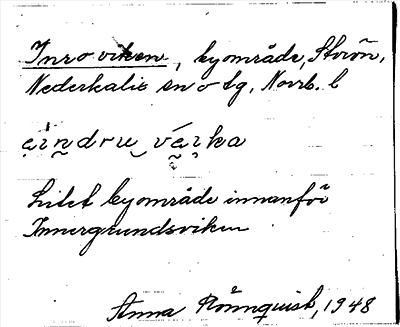 Inro viken, byområde, Storön,
Nederkalix sn o tg, Norrb. l
Litet byområde innanför
Innergrundsviken
Anna Rönnquist, 1948